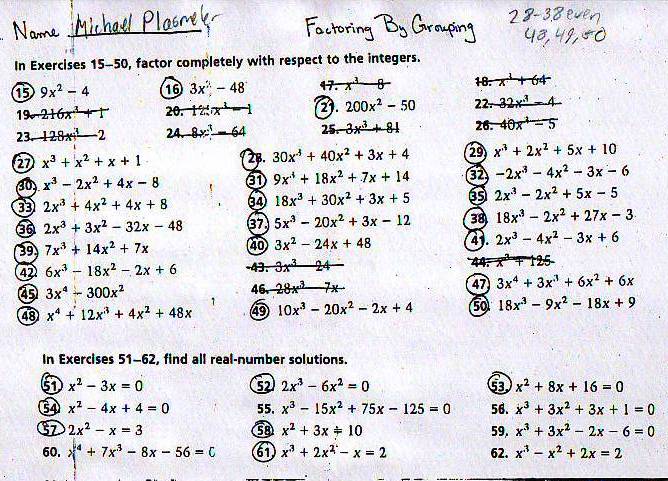 Name Michael Plasmeier Factoring By Grouping 28-38 even
48, 49, 50
In Exercises 15–50, factor completely with respect to the integers.
15 9x² − 4 16 3x² − 48 17. x³ − 8 18. x³ + 64
19. 216x³ + 1 20. 125x³ − 1 21. 200x² − 50 22. 32x³ − 4
23. 128x³ − 2 24. 8x³ − 64 25. 3x³ + 81 26. 40x³ − 5
27 x³ + x² + x + 1 28. 30x³ + 40x² + 3x + 4 29 x³ + 2x² + 5x + 10
30. x³ − 2x² + 4x − 8 31 9x³ + 18x² + 7x + 14 32. −2x³ − 4x² − 3x − 6
33 2x³ + 4x² + 4x + 8 34 18x³ + 30x² + 3x + 5 35 2x³ − 2x² + 5x − 5
36 2x³ + 3x² − 32x − 48 37. 5x³ − 20x² + 3x − 12 38 18x³ − 2x² + 27x − 3
39. 7x³ + 14x² + 7x 40 3x² − 24x + 48 41. 2x³ − 4x² − 3x + 6
42. 6x³ − 18x² − 2x + 6 43. 3x³ − 24 44. x³ + 125
45 3x⁴ − 300x² 46. 28x³ − 7x 47 3x⁴ + 3x³ + 6x² + 6x
48 x⁴ + 12x³ + 4x² + 48x 49 10x³ − 20x² − 2x + 4 50. 18x³ − 9x² − 18x + 9
In Exercises 51–62, find all real-number solutions.
51 x² − 3x = 0 52 2x³ − 6x² = 0 53. x² + 8x + 16 = 0
54 x² − 4x + 4 = 0 55. x³ − 15x² + 75x − 125 = 0 56. x³ + 3x² + 3x + 1 = 0
57 2x² − x = 3 58 x² + 3x = 10 59. x³ + 3x² − 2x − 6 = 0
60. x⁴ + 7x³ − 8x − 56 = 0 61 x³ + 2x² − x = 2 62. x³ − x² + 2x = 2